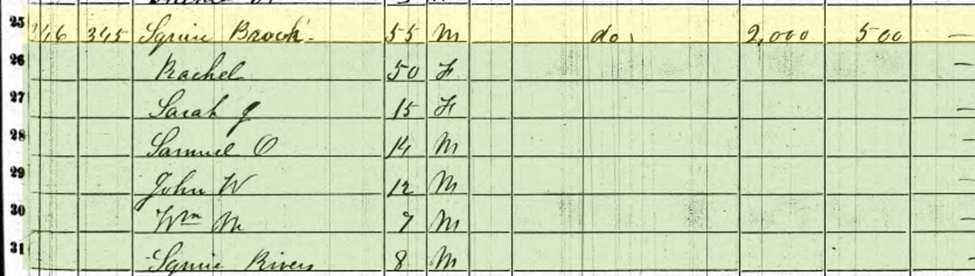 25 346 345 Squire Brook 55 M do 2,000 500 —
26 Rachel 50 F —
27 Sarah J 15 F —
28 Samuel O 14 M —
29 John W 12 M —
30 Wm M 7 M —
31 Squire Rivers 8 M —